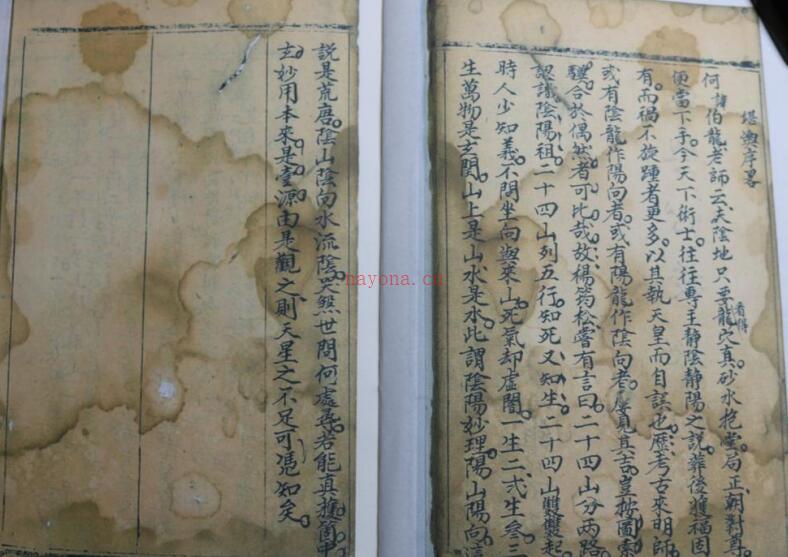 堪輿序畧
何伯龍老師云夫陰地只要龍穴真砂水抱堂局正朝對尊
看得
便當下手今天下術士往往專主靜陰靜陽之說葬後獲福固
有而禍不旋踵者更多以其執天皇而自誤也歷考古來明師
或有陰龍作陽向者或有陽龍作陰向者屢見其吉豈按圖索
驥合於偶然者可比哉故楊筠松嘗有言曰二十四山分兩路
認識陰陽祖二十四山列五行知死又知生二十四山雙雙起
時人少知義不問坐向與來山死氣却虛閣一生二弍生叁三
生萬物是玄関山上是山水是水此謂陰陽妙理陽山陽向
說是荒唐陰山陰向水流陰笑煞世間何處尋若能真獲箇中
玄妙用本來是壹源由是觀之則天星之不足可憑知矣
nayona.cn